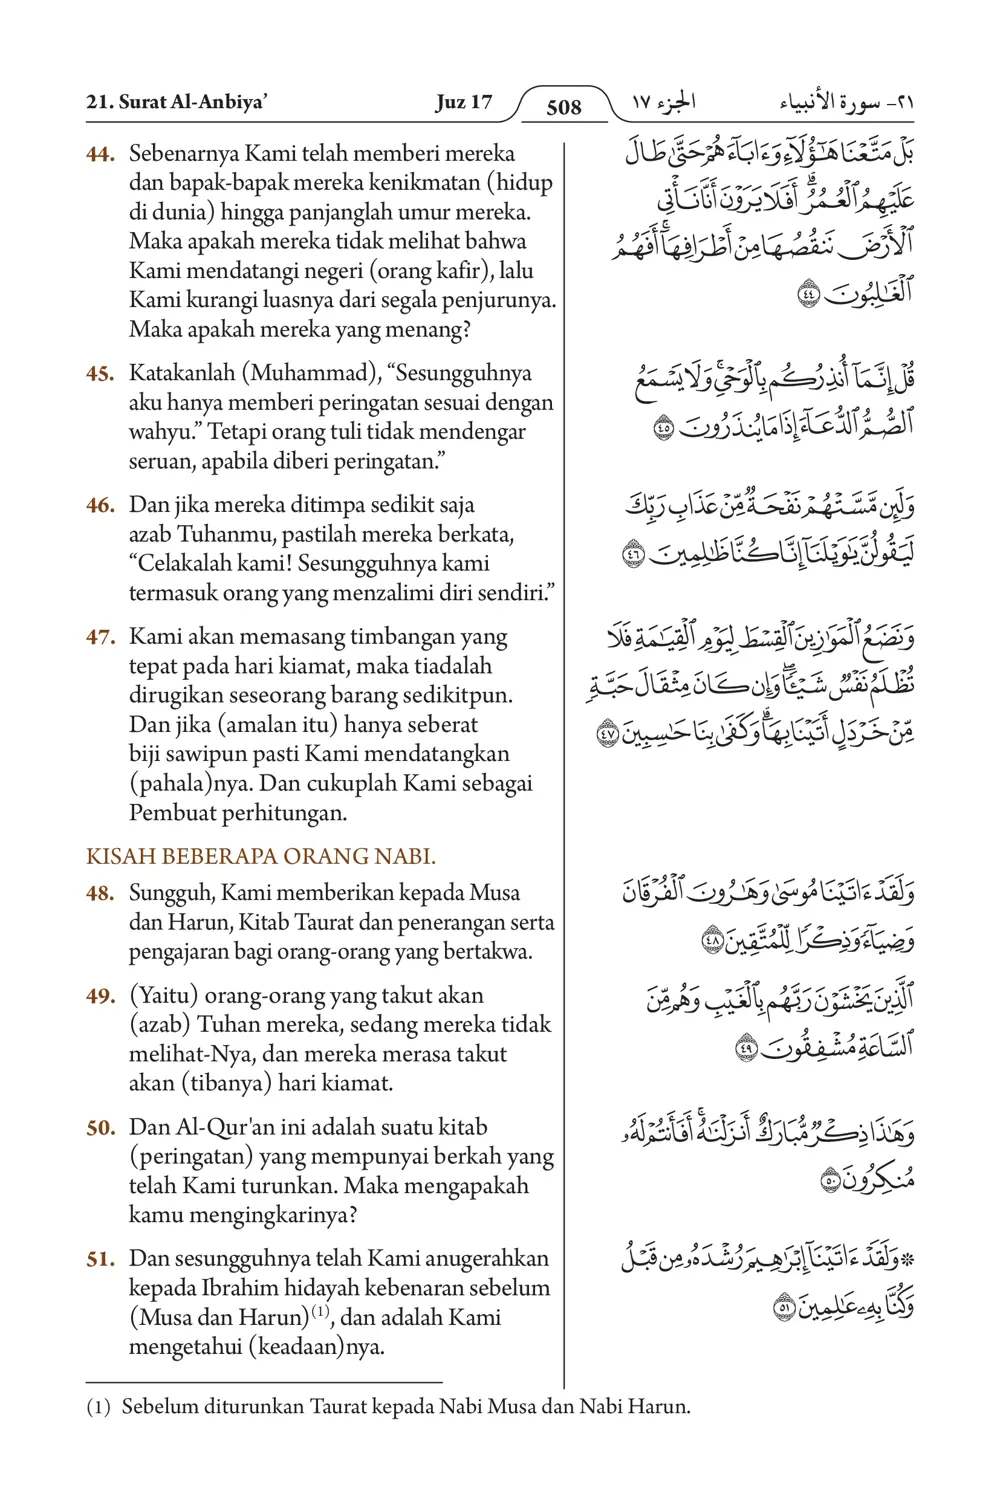 21. Surat Al-Anbiya’ Juz 17 508 الجزء ١٧ ٢١- سورة الأنبياء
44. Sebenarnya Kami telah memberi mereka
dan bapak-bapak mereka kenikmatan (hidup
di dunia) hingga panjanglah umur mereka.
Maka apakah mereka tidak melihat bahwa
Kami mendatangi negeri (orang kafir), lalu
Kami kurangi luasnya dari segala penjurunya.
Maka apakah mereka yang menang?
45. Katakanlah (Muhammad), “Sesungguhnya
aku hanya memberi peringatan sesuai dengan
wahyu.” Tetapi orang tuli tidak mendengar
seruan, apabila diberi peringatan.”
46. Dan jika mereka ditimpa sedikit saja
azab Tuhanmu, pastilah mereka berkata,
“Celakalah kami! Sesungguhnya kami
termasuk orang yang menzalimi diri sendiri.”
47. Kami akan memasang timbangan yang
tepat pada hari kiamat, maka tiadalah
dirugikan seseorang barang sedikitpun.
Dan jika (amalan itu) hanya seberat
biji sawipun pasti Kami mendatangkan
(pahala)nya. Dan cukuplah Kami sebagai
Pembuat perhitungan.
KISAH BEBERAPA ORANG NABI.
48. Sungguh, Kami memberikan kepada Musa
dan Harun, Kitab Taurat dan penerangan serta
pengajaran bagi orang-orang yang bertakwa.
49. (Yaitu) orang-orang yang takut akan
(azab) Tuhan mereka, sedang mereka tidak
melihat-Nya, dan mereka merasa takut
akan (tibanya) hari kiamat.
50. Dan Al-Qur'an ini adalah suatu kitab
(peringatan) yang mempunyai berkah yang
telah Kami turunkan. Maka mengapakah
kamu mengingkarinya?
51. Dan sesungguhnya telah Kami anugerahkan
kepada Ibrahim hidayah kebenaran sebelum
(Musa dan Harun)(1), dan adalah Kami
mengetahui (keadaan)nya.
بَلْ مَتَّعْنَا هَٰٓؤُلَآءِ وَءَابَآءَهُمْ حَتَّىٰ طَالَ
عَلَيْهِمُ ٱلْعُمُرُ ۗ أَفَلَا يَرَوْنَ أَنَّا نَأْتِي
ٱلْأَرْضَ نَنقُصُهَا مِنْ أَطْرَافِهَآ ۚ أَفَهُمُ
ٱلْغَٰلِبُونَ ٤٤
قُلْ إِنَّمَآ أُنذِرُكُم بِٱلْوَحْيِ ۚ وَلَا يَسْمَعُ
ٱلصُّمُّ ٱلدُّعَآءَ إِذَا مَا يُنذَرُونَ ٤٥
وَلَئِن مَّسَّتْهُمْ نَفْحَةٌ مِّنْ عَذَابِ رَبِّكَ
لَيَقُولُنَّ يَٰوَيْلَنَآ إِنَّا كُنَّا ظَٰلِمِينَ ٤٦
وَنَضَعُ ٱلْمَوَٰزِينَ ٱلْقِسْطَ لِيَوْمِ ٱلْقِيَٰمَةِ فَلَا
تُظْلَمُ نَفْسٌ شَيْـًٔا ۖ وَإِن كَانَ مِثْقَالَ حَبَّةٍ
مِّنْ خَرْدَلٍ أَتَيْنَا بِهَا ۗ وَكَفَىٰ بِنَا حَٰسِبِينَ ٤٧
وَلَقَدْ ءَاتَيْنَا مُوسَىٰ وَهَٰرُونَ ٱلْفُرْقَانَ
وَضِيَآءً وَذِكْرًا لِّلْمُتَّقِينَ ٤٨
ٱلَّذِينَ يَخْشَوْنَ رَبَّهُم بِٱلْغَيْبِ وَهُم مِّنَ
ٱلسَّاعَةِ مُشْفِقُونَ ٤٩
وَهَٰذَا ذِكْرٌ مُّبَارَكٌ أَنزَلْنَٰهُ ۚ أَفَأَنتُمْ لَهُۥ
مُنكِرُونَ ٥٠
* وَلَقَدْ ءَاتَيْنَآ إِبْرَٰهِيمَ رُشْدَهُۥ مِن قَبْلُ
وَكُنَّا بِهِۦ عَٰلِمِينَ ٥١
(1) Sebelum diturunkan Taurat kepada Nabi Musa dan Nabi Harun.